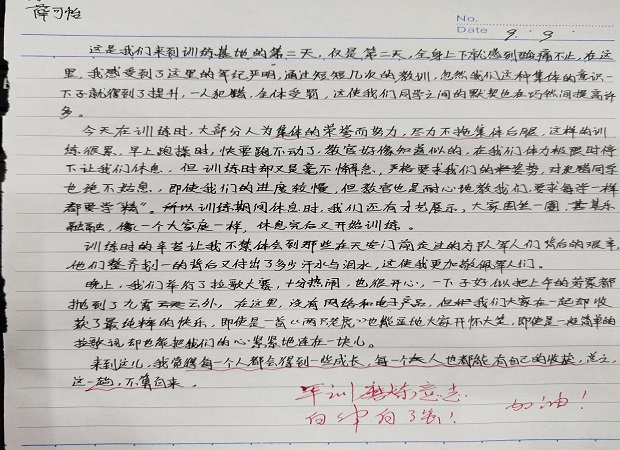 薛可怡
No.
Date 9. 9.
这是我们来到训练基地的第二天，仅是第二天，全身上下就感到酸痛不止，在这
里，我感受到了这里的军纪严明，通过短短几次的教训，忽然我们这种集体的意识一
下子就得到了提升，一人犯错，全体受罚，这使我们同学之间的默契也在巧然间提高许
多。
今天在训练时，大部分人为集体的荣誉而努力，尽力不拖集体后腿，这样的训
练很累，早上跑操时，快要跑不动了，教官好像知道似的，在我们体力极限时停
下让我们休息，但训练时却又是毫不懈怠，严格要求我们的姿势，对犯错同学
也绝不姑息，即使我们的进度较慢，但教官也是耐心地教我们，要求每学一样
都要学“精”。训练期间休息时，我们还有才艺展示，大家围坐一圈，其乐
融融，像一个大家庭一样，休息完后又开始训练。
训练时的辛苦让我不禁体会到那些在天安门前走过的方队军人们背后的艰辛，
他们整齐划一的背后又付出了多少汗水与泪水，这使我更加敬佩军人们。
晚上，我们举行了拉歌大赛，十分热闹，也很开心，一下子好似把上午的劳累都
抛到了九霄云外，在这里，没有网络和电子产品，但我们大家在一起却收
获了最纯粹的快乐，即使是一首《两只老虎》也能逗地大家开怀大笑，即使是一段简单的
拉歌词却也能把我们的心紧紧地连在一块儿。
来到这儿，我觉得每一个人都会得到一些成长，每一个人也都能有自己的收获，总之，
这一趟，不算白来。
军训磨炼意志
加油！